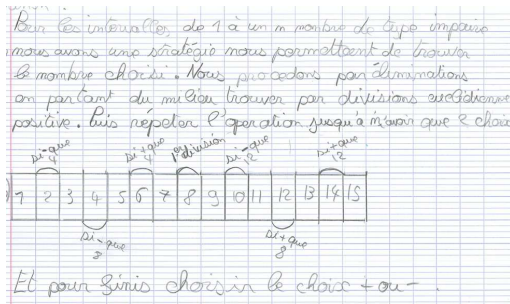 Pour les intervalles de 1 à un n nombre de type impaire
nous avons une stratégie nous permettant de trouver
le nombre choisi. Nous procedons par éliminations
en partant du milieu trouver par divisions euclidienne
positive. Puis répéter l'operation jusqu'à n'avoir que 2 choix
si - que 4
si + que 4
1ère division
si - que 12
si + que 12
1 2 3 4 5 6 7 8 9 10 11 12 13 14 15
si - que 8
si + que 8
Et pour finis choisir le choix + ou -.